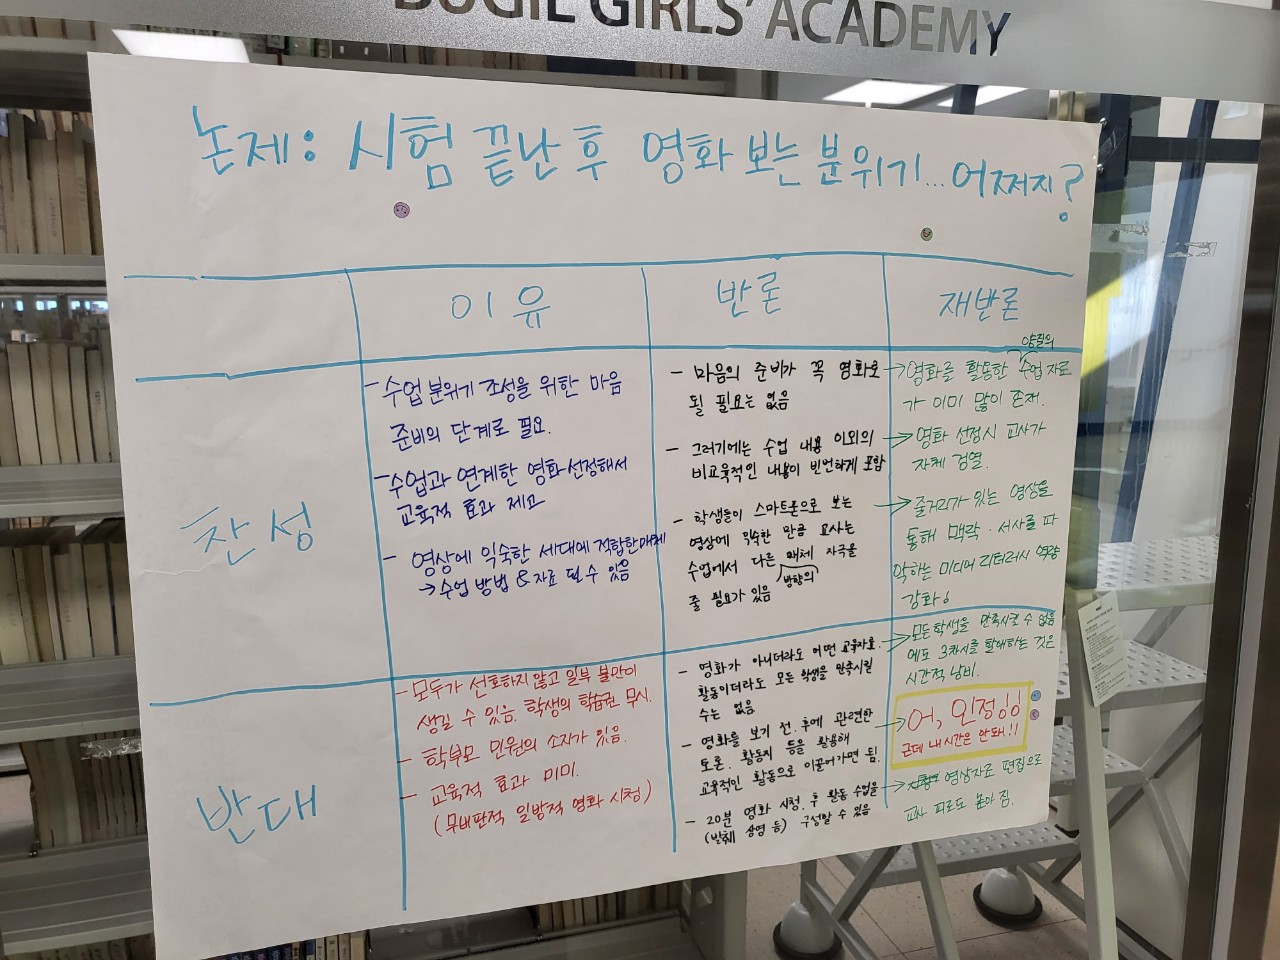 BUGIL GIRLS' ACADEMY
논제: 시험 끝난 후 영화 보는 분위기... 어쩌지?
이유
반론
재반론
찬성
- 수업 분위기 조성을 위한 마음
준비의 단계로 필요.
- 수업과 연계한 영화 선정해서
교육적 효과 제고
- 영상에 익숙한 세대에 적합한 매체
→ 수업 방법 & 자료 될 수 있음
- 마음의 준비가 꼭 영화로
될 필요는 없음
- 그러기에는 수업 내용 이외의
비교육적인 내용이 빈번하게 포함
- 학생들이 스마트폰으로 보는
영상에 익숙한 만큼 교사는
수업에서 다른 매체 자극을
방향의
줄 필요가 있음
양질의
→ 영화를 활동한 수업 자료
가 이미 많이 존재.
→ 영화 선정시 교사가
자체 검열.
→ 줄거리가 있는 영상을
통해 맥락·서사를 파
악하는 미디어 리터러시 역량
강화!
반대
- 모두가 선호하지 않고 일부 불만이
생길 수 있음. 학생의 학습권 무시.
- 학부모 민원의 소지가 있음.
- 교육적 효과 미미.
(무비판적 일방적 영화 시청)
- 영화가 아니더라도 어떤 교육자료,
활동이더라도 모든 학생을 만족시킬
수는 없음
- 영화를 보기 전·후에 관련한
토론, 활동지 등을 활용해
교육적인 활동으로 이끌어가면 됨.
- 20분 영화 시청 후 활동 수업을
(발췌 상영 등) 구성할 수 있음
→ 모든 학생을 만족시킬 수 없음
에도 3차시를 할애하는 것은
시간적 낭비.
→ 어, 인정!!
근데 내 시간은 안돼!!
→ 영상자료 편집으로
교사 피로도 높아 짐.